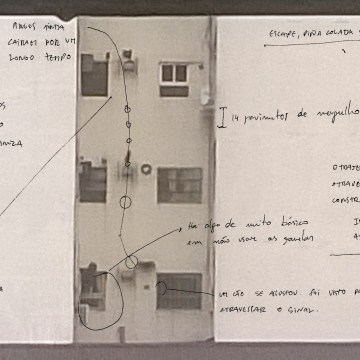 AMBOS AINDA
CAÍRAM POR UM
LONGO TEMPO
ESCAPE, PIÑA COLADA
14 pavimentos de mergulho
OS
O
ANZA
O TRAJE
ATRAVE
CONSTR
Há algo de muito básico
em não usar as
A
UM CÃO SE ASSUSTOU. FOI VISTO
ATRAVESSAR O SINAL.